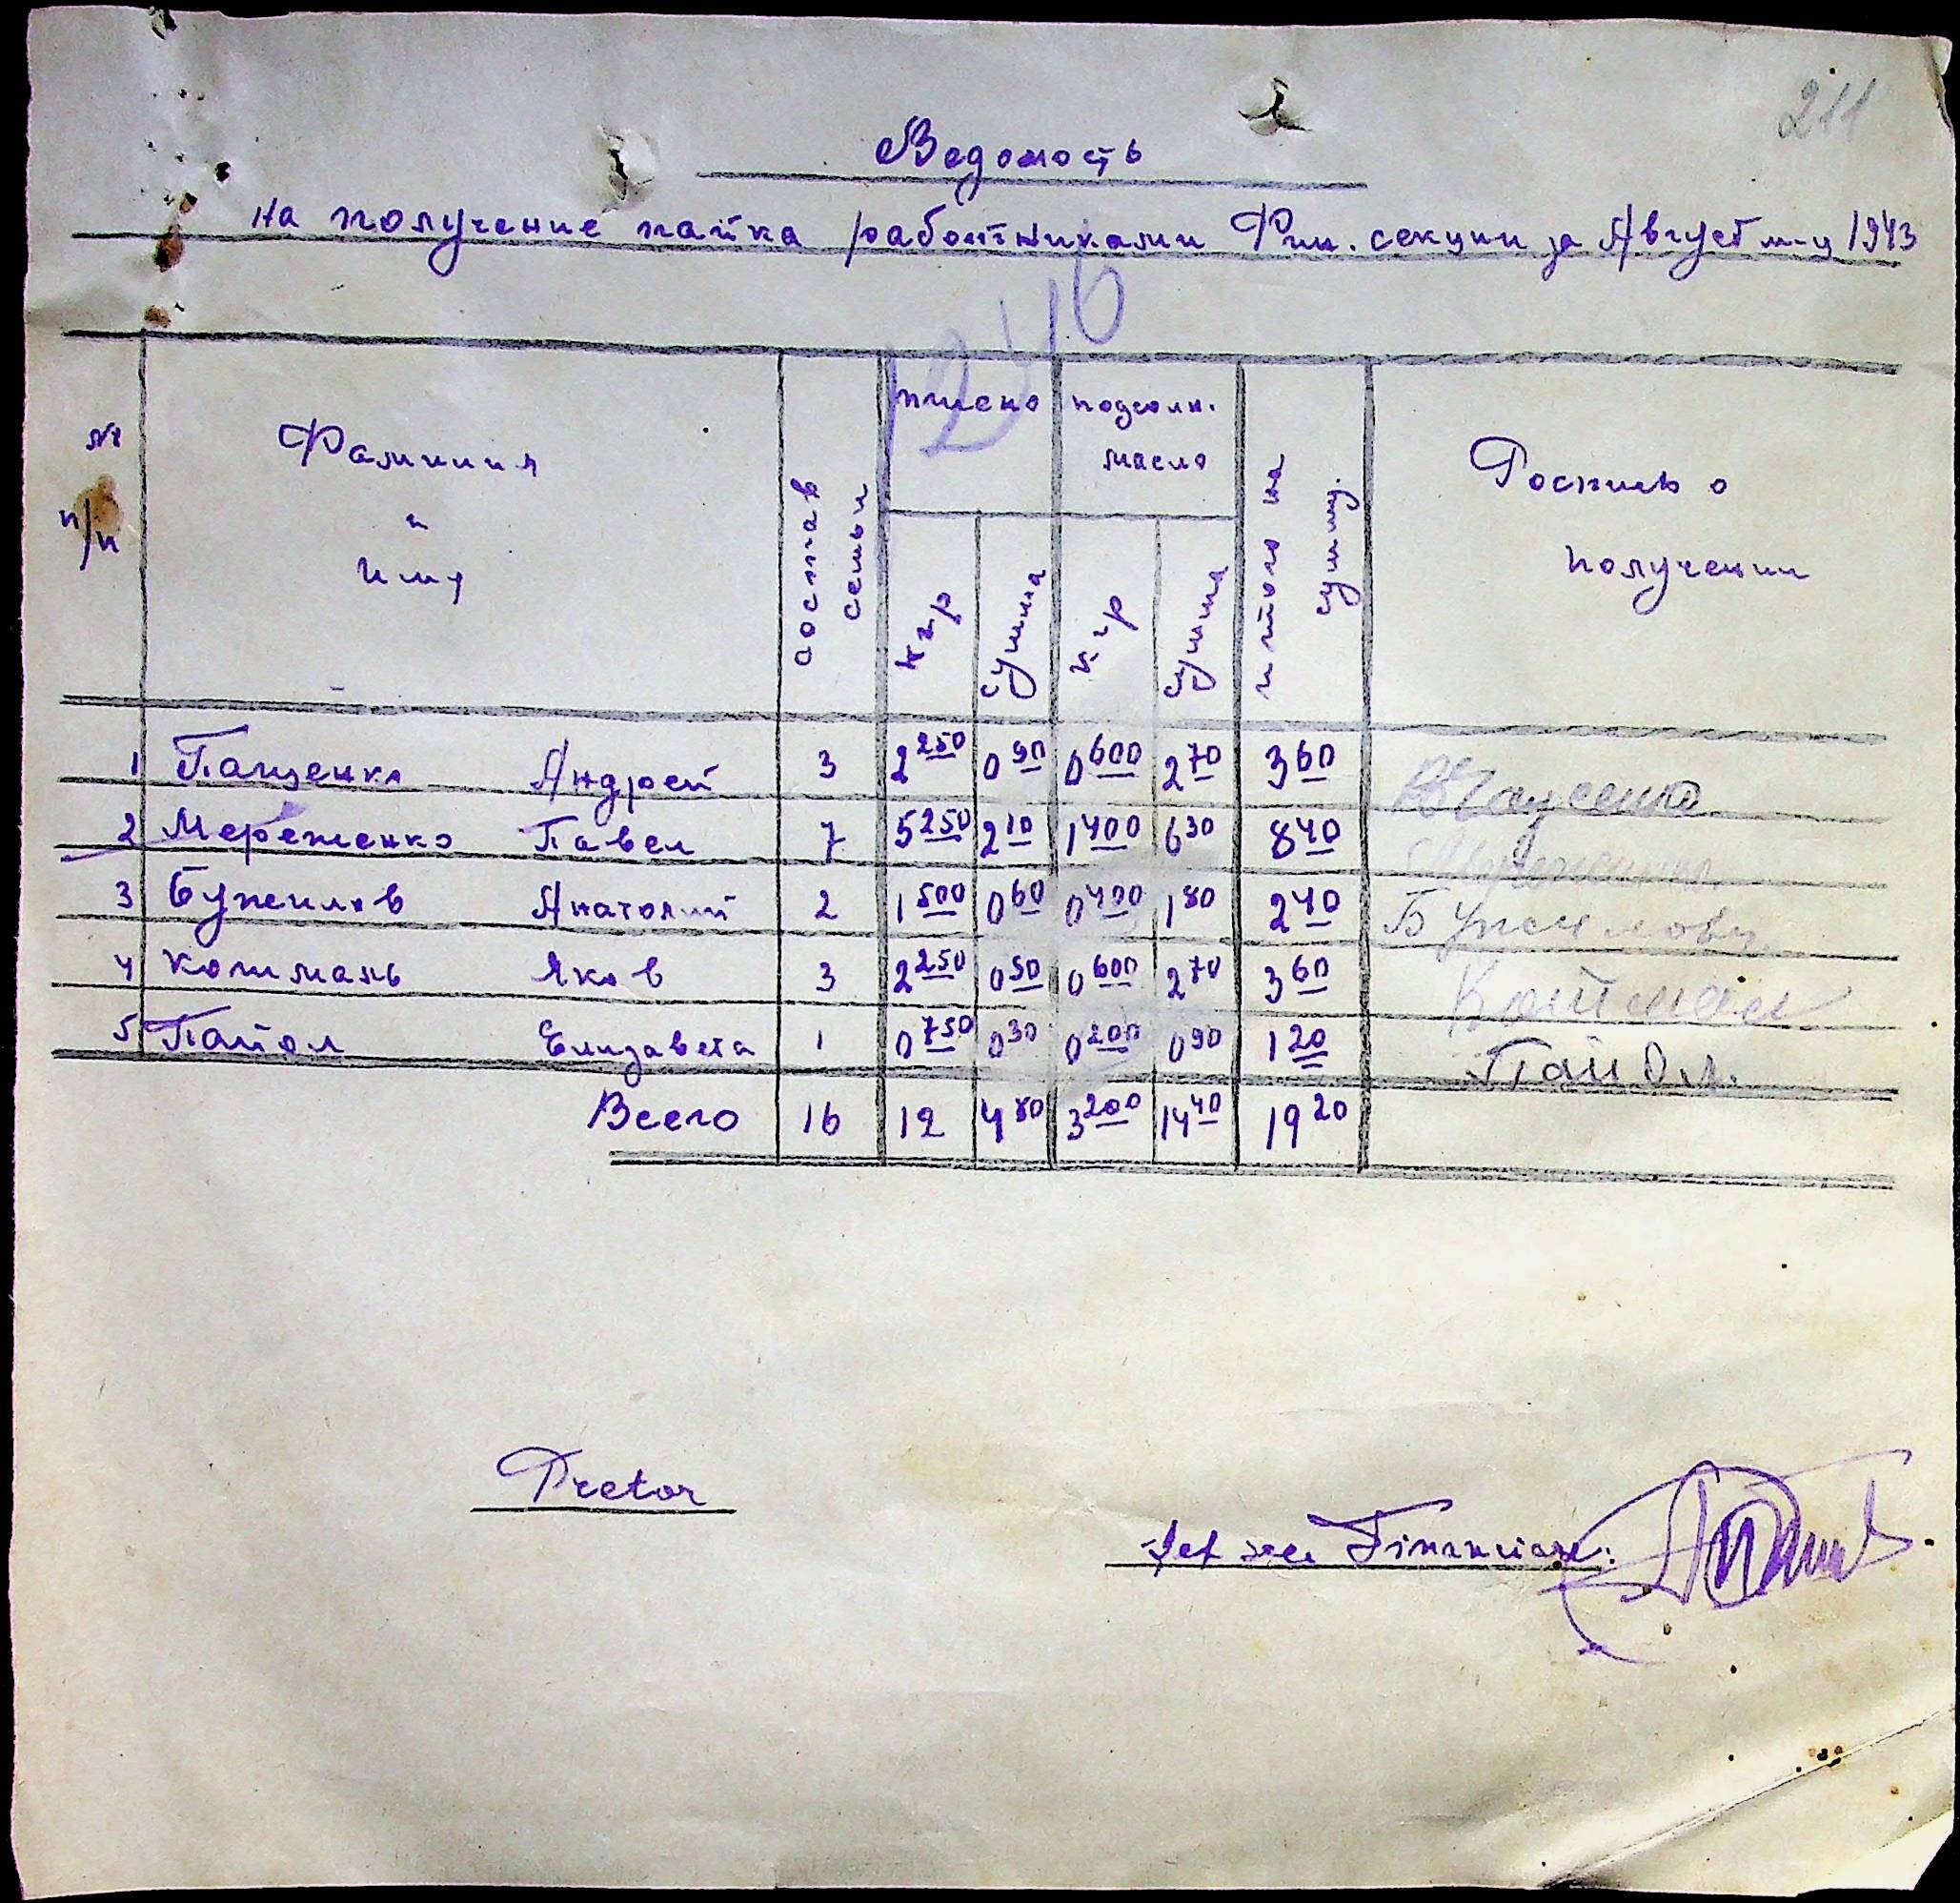 211
Ведомость
на получение пайка работниками Фин. секции за Август м-ц 1943
1246
№ п/п Фамилия и Имя состав семьи пшено подсолн. масло итого на сумму. Роспись о получении
кгр сумма кгр сумма
1 Пащенко Андрей 3 2 250 0 90 0 600 2 70 3 60
2 Мереженко Павел 7 5 250 2 10 1 400 6 30 8 40
3 Бужилов Анатолий 2 1 500 0 60 0 400 1 80 2 40 Бужилову
4 Кошмань Яков 3 2 250 0 90 0 600 2 70 3 60 Кошман
5 Пайол Елизавета 1 0 750 0 30 0 200 0 90 1 20 Пайол.
Всего 16 12 4 80 3 200 14 40 19 20
Pretor
Șef sec Financiare: